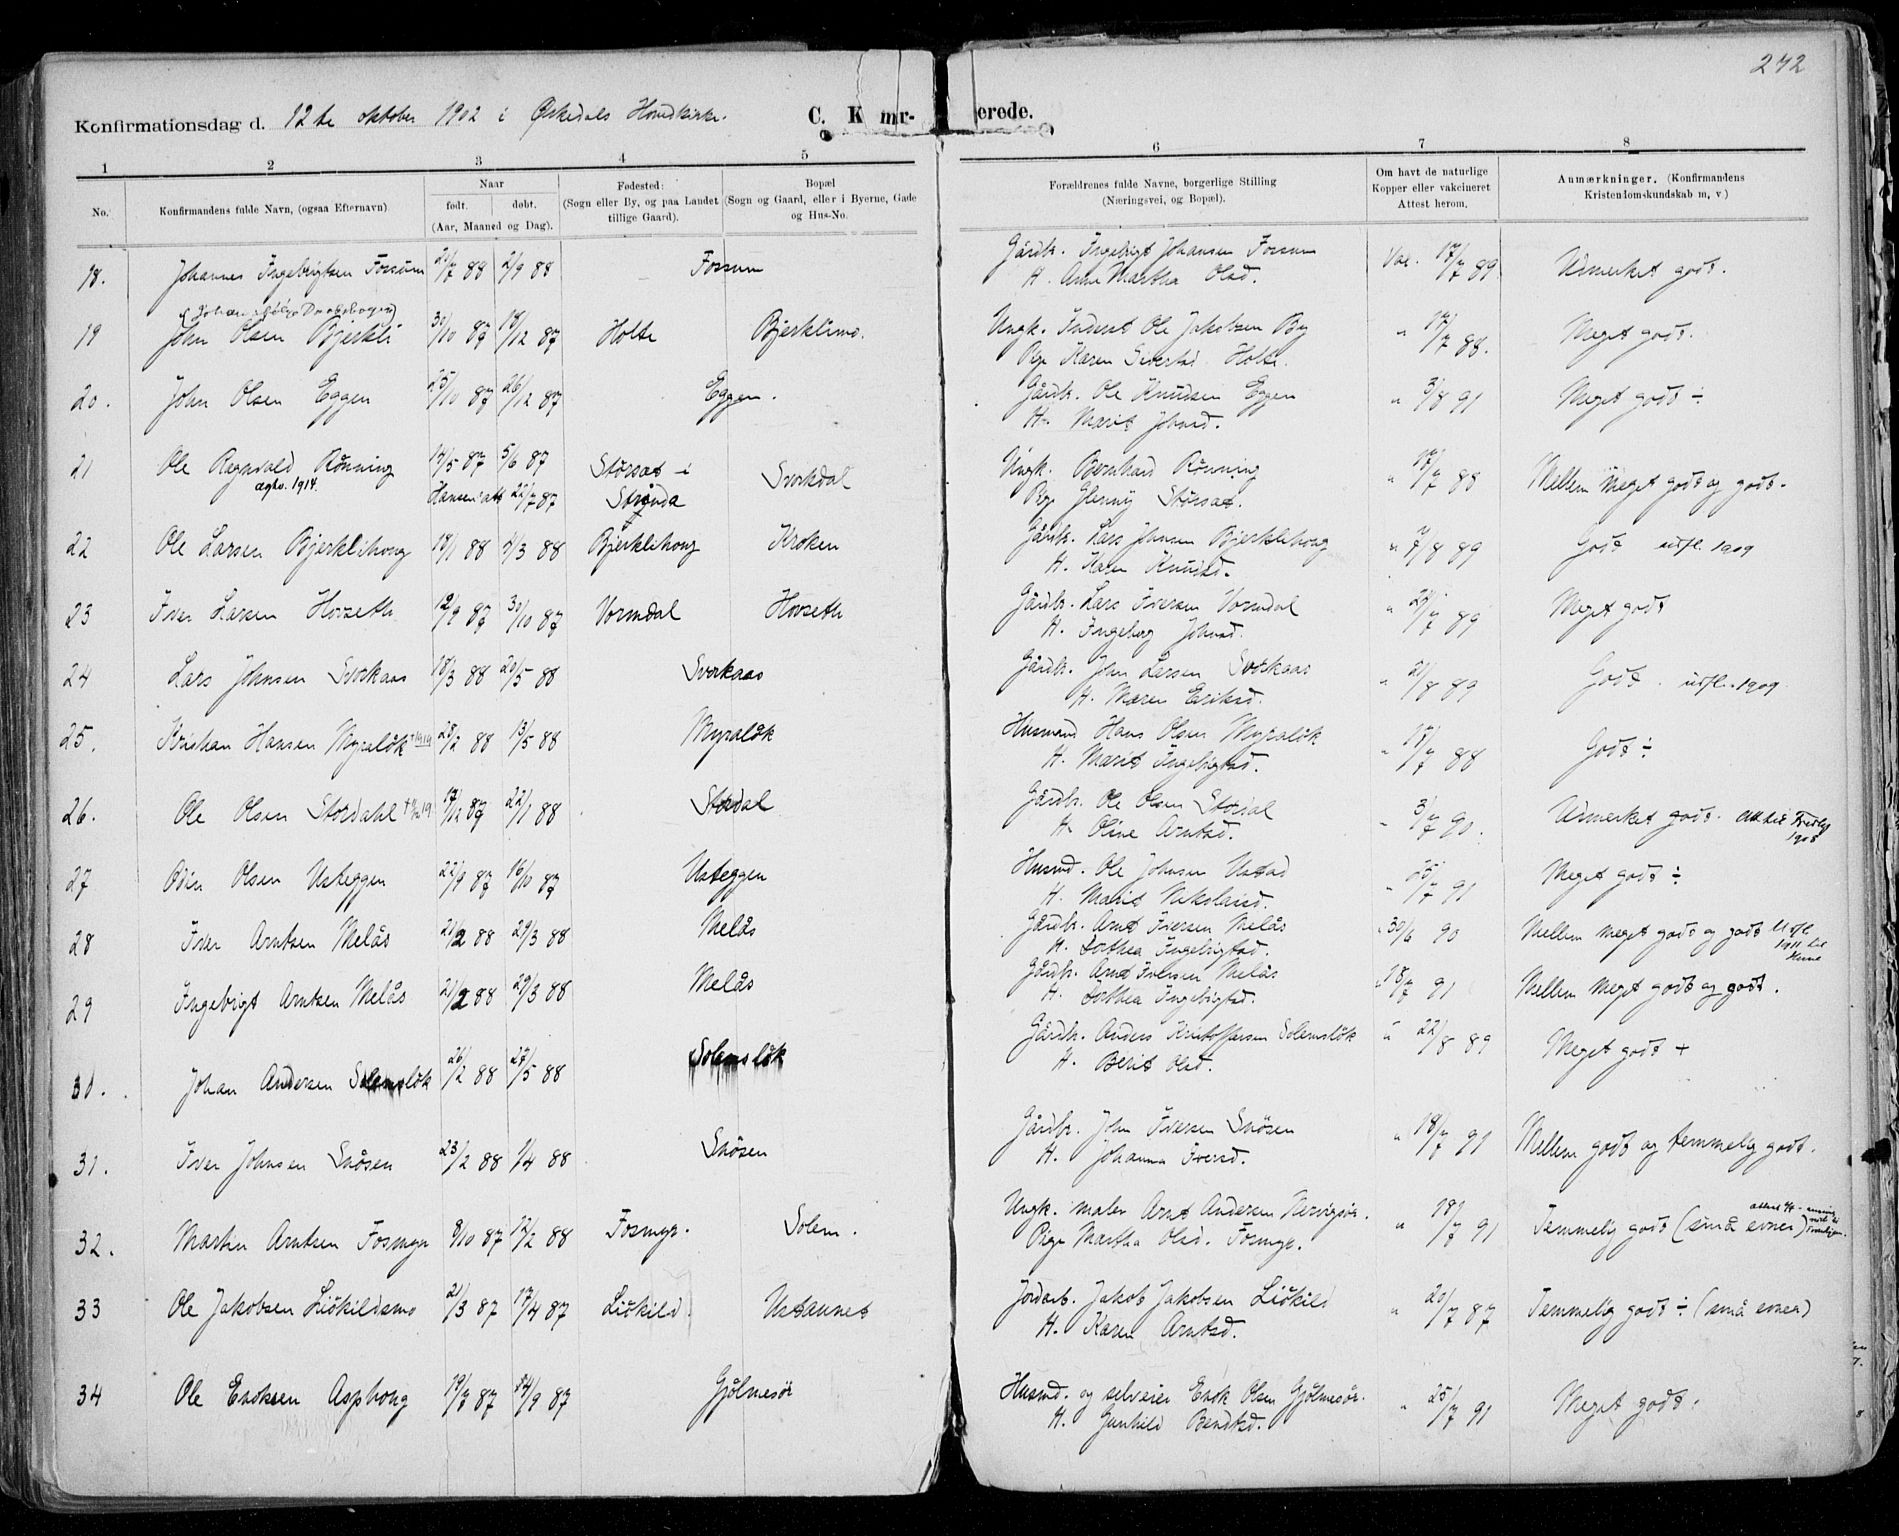 272
Konfirmationsdag d. 12te oktober 1902 i Ørkedals Hovedkirke. C. K mr- erede.
1 2 3 4 5 6 7 8
No. Konfirmandens fulde Navn, (ogsaa Efternavn) Naar født. døbt. (Aar, Maaned og Dag).
Fødested: (Sogn eller By, og paa Landet tillige Gaard).
Bopæl (Sogn og Gaard, eller i Byerne, Gade og Hus-No.
Forældrenes fulde Navne, borgerlige Stilling (Næringsvei, og Bopæl).
Om havt de naturlige Kopper eller vakcineret Attest herom.
Anmærkninger. (Konfirmandens Kristendomskundskab m, v.)
18. Johannes Ingebrigtsen Fossum 21/7 88 2/9 88 Fossum Gårdbr. Ingebrigt Johansen Fossum Vac. 17/7 89 Udmerket godt.
H. Anne Martha Olsd.
(Johan ifølge Daabsbogen)
19 John Olsen Bjerkli 30/10 87 18/12 87 Holte Bjerklimo. Ungk. Inderst Ole Jakobsen By " 17/7 88. Meget godt.
Pige Karen Sivertsd. Holte.
20. John Olsen Eggen 25/10 87 26/12 87 Eggen. Gårdbr. Ole Knudsen Eggen " 3/8 91 Meget godt ÷
H. Marit Johnsd.
21 Ole Ragnvald Rønning 12/5 87 5/6 87 Størset i Svorkdal Ungk. Bernhard Rønning " 17/7 88 Mellem Meget godt og godt.
1914. 22/7 87 Strinda Pige Størset.
22 Ole Larsen Bjerklihoug 18/1 88 4/3 88 Bjerklihoug Kroken Gårdbr. Lars Johnsen Bjerklihoug " 7/8 89 Godt udfl. 1909
H. Karen Knudsd.
23 Iver Larsen Hovseth 12/9 87 30/10 87 Vormdal Hovseth Gårdbr. Lars Iversen Vormdal " 24/7 89 Meget godt
H. Ingeborg Johnsd.
24 Lars Johnsen Svorkaas 18/3 88 20/5 88 Svorkaas Gårdbr. John Larsen Svorkaas " 21/8 89 Godt. udfl. 1909.
H. Maren Eriksd.
25. Kristian Hansen Myraløk 28/2 88 13/5 88 Myraløk Husmand Hans Olsen Myraløk " 17/7 88 Godt ÷
H. Marit Ingebrigtsd.
26. Ole Olsen Stordahl 17/12 87 22/1 88 Stordal Gårdbr. Ole Olsen Stordal " 3/7 90. Udmerket godt. 1908
H. Oline Arntsd.
27 Odin Olsen Usteggen 22/9 87 16/10 87 Usteggen Husmd. Ole Johnsen Ustad " 25/7 91 Meget godt ÷
H. Marit Nikolaisd.
28 Iver Arntsen Melås 21/2 88 29/3 88 Melås Gårdbr. Arnt Iversen Melås " 30/6 90 Mellem meget godt og godt Udfl. 1911 til
H. Dorthea Ingebrigtsd.
29 Ingebrigt Arntsen Melås 21/2 88 29/3 88 Melås Gårdbr. Arnt Iversen Melås " 18/7 91 Mellem meget godt og godt.
H. Dorthea Ingebrigtsd.
30. Johan Andersen Solemsløk 26/2 88 27/5 88 Solemsløk Gårdbr. Anders Kristoffersen Solemsløk " 22/8 89 Meget godt +
H. Berit Olsd.
31. Iver Johnsen Snøsen 23/2 88 1/4 88 Snøsen Gårdbr. John Iversen Snøsen " 18/7 91 Mellem godt og temmelig godt.
H. Johanna Iversd.
32. Martin Arntsen Fosmyr 9/10 87 12/2 88 Fosmyr. Solem. Ungk. maler Arnt Andersen " 18/7 91 Temmelig godt (små evner)
Pige Martha Olsd. Fosmyr.
33 Ole Jakobsen Liøkildsmo 21/3 87 17/4 87 Liøkild. Ustaunet Jordarb. Jakob Jakobsen Liøkild " 20/7 87 Temmelig godt ÷ (små evner)
H. Karen Arntsd.
34 Ole Enoksen Asphoug 19/7 87 24/9 87 Gjølmesør Husmd. og selveier Enok Olsen Gjølmesør. " 25/7 91 Meget godt.
H. Gunhild Bendtsd.